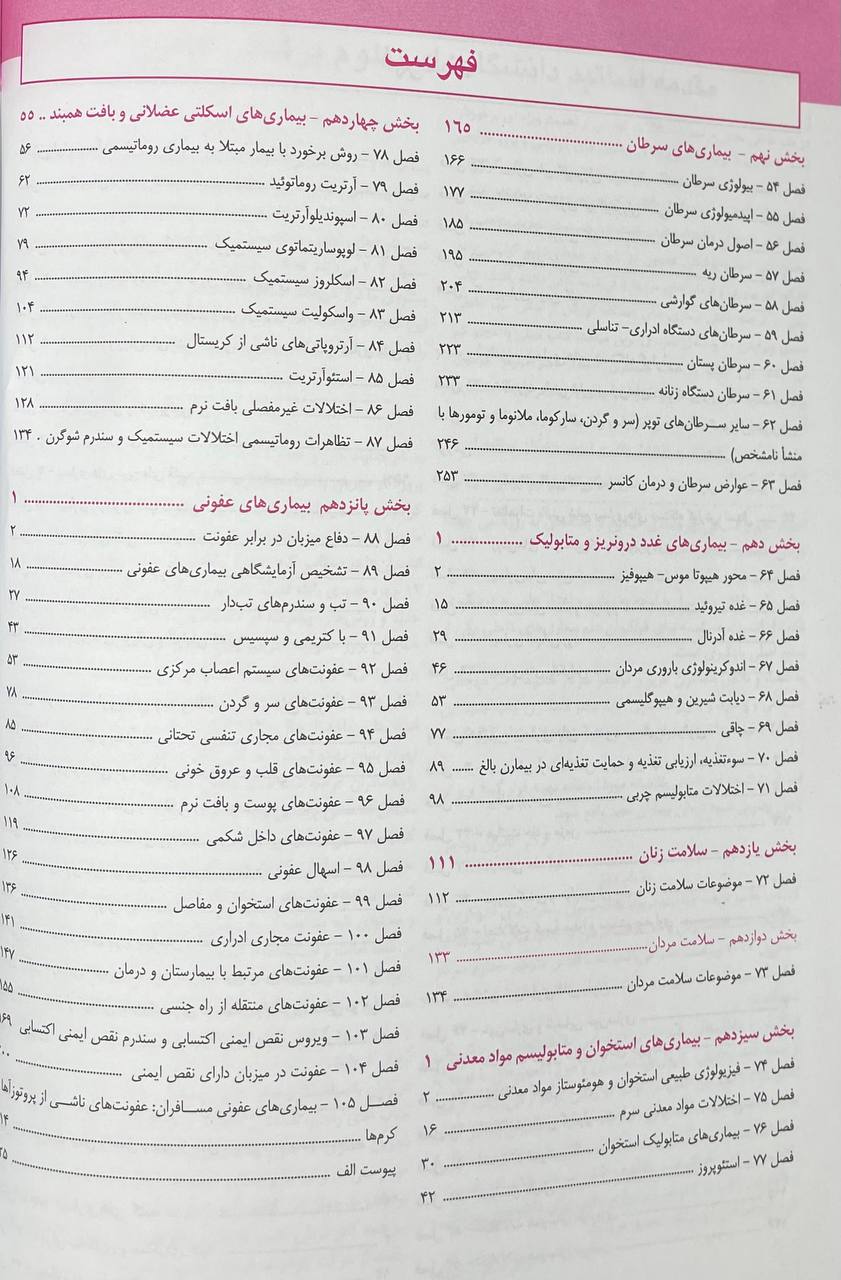 فهرست
بخش نهم - بیماری‌های سرطان ........ ۱۶۵
فصل ۵۴ - بیولوژی سرطان ........ ۱۶۶
فصل ۵۵ - اپیدمیولوژی سرطان ........ ۱۷۷
فصل ۵۶ - اصول درمان سرطان ........ ۱۸۵
فصل ۵۷ - سرطان ریه ........ ۱۹۵
فصل ۵۸ - سرطان‌های گوارشی ........ ۲۰۴
فصل ۵۹ - سرطان‌های دستگاه ادراری- تناسلی ........ ۲۱۳
فصل ۶۰ - سرطان پستان ........ ۲۲۳
فصل ۶۱ - سرطان دستگاه زنانه ........ ۲۳۳
فصل ۶۲ - سایر سـرطان‌های توپر (سر و گردن، سارکوما، ملانوما و تومورها با
منشأ نامشخص) ........ ۲۴۶
فصل ۶۳ - عوارض سرطان و درمان کانسر ........ ۲۵۳
بخش دهم - بیماری‌های غدد درون‌ریز و متابولیک ........ ۱
فصل ۶۴ - محور هیپوتا موس- هیپوفیز ........ ۲
فصل ۶۵ - غده تیروئید ........ ۱۵
فصل ۶۶ - غده آدرنال ........ ۲۹
فصل ۶۷ - اندوکرینولوژی باروری مردان ........ ۴۶
فصل ۶۸ - دیابت شیرین و هیپوگلیسمی ........ ۵۳
فصل ۶۹ - چاقی ........ ۷۷
فصل ۷۰ - سوءتغذیه، ارزیابی تغذیه و حمایت تغذیه‌ای در بیمارن بالغ ...... ۸۹
فصل ۷۱ - اختلالات متابولیسم چربی ........ ۹۸
بخش یازدهم - سلامت زنان ........ ۱۱۱
فصل ۷۲ - موضوعات سلامت زنان ........ ۱۱۲
بخش دوازدهم - سلامت مردان ........ ۱۳۳
فصل ۷۳ - موضوعات سلامت مردان ........ ۱۳۴
بخش سیزدهم - بیماری‌های استخوان و متابولیسم مواد معدنی ۱
فصل ۷۴ - فیزیولوژی طبیعی استخوان و هومئوستاز مواد معدنی ........ ۲
فصل ۷۵ - اختلالات مواد معدنی سرم ........ ۱۶
فصل ۷۶ - بیماری‌های متابولیک استخوان ........ ۳۰
فصل ۷۷ - استئوپروز ........ ۴۲
بخش چهاردهم - بیماری‌های اسکلتی عضلانی و بافت همبند .. ۵۵
فصل ۷۸ - روش برخورد با بیمار مبتلا به بیماری روماتیسمی ........ ۵۶
فصل ۷۹ - آرتریت روماتوئید ........ ۶۲
فصل ۸۰ - اسپوندیلوآرتریت ........ ۷۲
فصل ۸۱ - لوپوساریتماتوی سیستمیک ........ ۷۹
فصل ۸۲ - اسکلروز سیستمیک ........ ۹۴
فصل ۸۳ - واسکولیت سیستمیک ........ ۱۰۴
فصل ۸۴ - آرتروپاتی‌های ناشی از کریستال ........ ۱۱۲
فصل ۸۵ - استئوآرتریت ........ ۱۲۱
فصل ۸۶ - اختلالات غیرمفصلی بافت نرم ........ ۱۲۸
فصل ۸۷ - تظاهرات روماتیسمی اختلالات سیستمیک و سندرم شوگرن . ۱۳۴
بخش پانزدهم بیماری‌های عفونی ........ ۱
فصل ۸۸ - دفاع میزبان در برابر عفونت ........ ۲
فصل ۸۹ - تشخیص آزمایشگاهی بیماری‌های عفونی ........ ۱۸
فصل ۹۰ - تب و سندرم‌های تب‌دار ........ ۲۷
فصل ۹۱ - با کتریمی و سپسیس ........ ۴۳
فصل ۹۲ - عفونت‌های سیستم اعصاب مرکزی ........ ۵۳
فصل ۹۳ - عفونت‌های سر و گردن ........ ۷۸
فصل ۹۴ - عفونت‌های مجاری تنفسی تحتانی ........ ۸۵
فصل ۹۵ - عفونت‌های قلب و عروق خونی ........ ۹۶
فصل ۹۶ - عفونت‌های پوست و بافت نرم ........ ۱۰۸
فصل ۹۷ - عفونت‌های داخل شکمی ........ ۱۱۹
فصل ۹۸ - اسهال عفونی ........ ۱۲۶
فصل ۹۹ - عفونت‌های استخوان و مفاصل ........ ۱۳۶
فصل ۱۰۰ - عفونت مجاری ادراری ........ ۱۴۱
فصل ۱۰۱ - عفونت‌های مرتبط با بیمارستان و درمان ........ ۱۴۷
فصل ۱۰۲ - عفونت‌های منتقله از راه جنسی ........ ۱۵۵
فصل ۱۰۳ - ویروس نقص ایمنی اکتسابی و سندرم نقص ایمنی اکتسابی ۱۶۹
فصل ۱۰۴ - عفونت در میزبان دارای نقص ایمنی ........
فصــل ۱۰۵ - بیماری‌های عفونی مسـافران: عفونت‌های ناشـی از پروتوزآها
کرم‌ها ........
پیوست الف ........